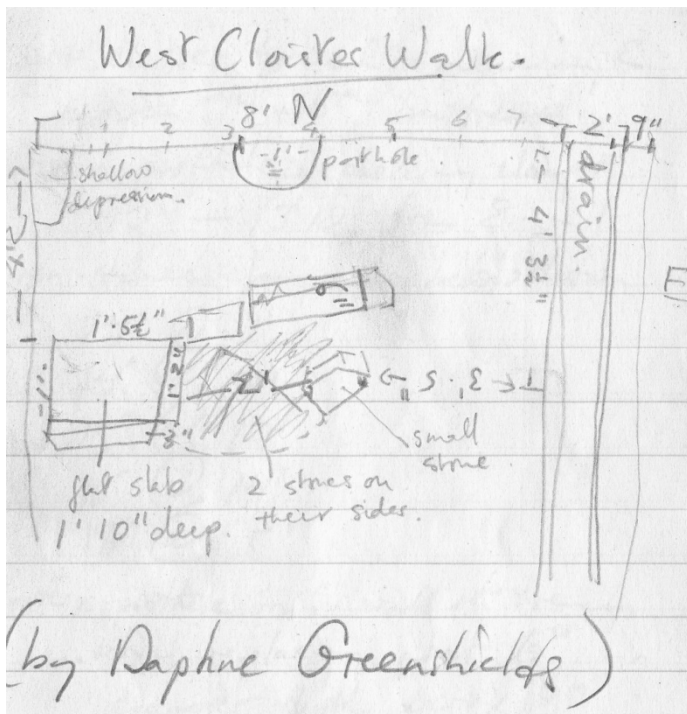 West Cloister Walk.
8' N
1 2 3 4 5 6 7 2' 9"
shallow
depression.
1'
porthole
drain.
4' 3½"
4' 2"
E
9"
1'·5½"
1'
1' 2"
3"
2'
3' 5"
small
stone
flat slab
1' 10" deep.
2 stones on
their sides.
(by Daphne Greenshields)